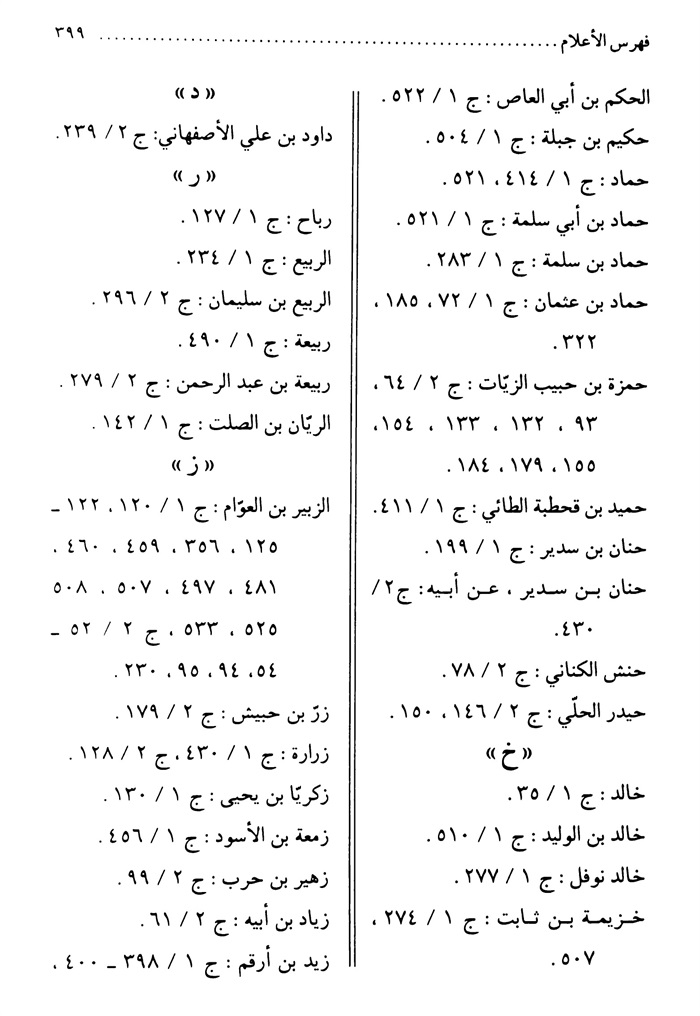 فهرس الأعلام ............................................................ ٣٩٩
الحكم بن أبي العاص : ج ١ / ٥٢٢ .
حكيم بن جبلة : ج ١ / ٥٠٤ .
حماد : ج ١ / ٤١٤ ، ٥٢١ .
حماد بن أبي سلمة : ج ١ / ٥٢١ .
حماد بن سلمة : ج ١ / ٢٨٣ .
حماد بن عثمان : ج ١ / ٧٢ ، ١٨٥ ،
٣٢٢ .
حمزة بن حبيب الزيّات : ج ٢ / ٦٤ ،
٩٣ ، ١٣٢ ، ١٣٣ ، ١٥٤ ،
١٥٥ ، ١٧٩ ، ١٨٤ .
حميد بن قحطبة الطائي : ج ١ / ٤١١ .
حنان بن سدير : ج ١ / ١٩٩ .
حنان بـن سـدير ، عـن أبـيه : ج٢ /
٤٣٠ .
حنش الكناني : ج ٢ / ٧٨ .
حيدر الحلّي : ج ٢ / ١٤٦ ، ١٥٠ .
« خ »
خالد : ج ١ / ٣٥ .
خالد بن الوليد : ج ١ / ٥١٠ .
خالد نوفل : ج ١ / ٢٧٧ .
خـزيمة بـن ثـابت : ج ١ / ٢٧٤ ،
٥٠٧ .
« د »
داود بن علي الأصفهاني: ج ٢ / ٢٣٩ .
« ر »
رباح : ج ١ / ١٢٧ .
الربيع : ج ١ / ٢٣٤ .
الربيع بن سليمان : ج ٢ / ٢٩٦ .
ربيعة : ج ١ / ٤٩٠ .
ربيعة بن عبد الرحمن : ج ٢ / ٢٧٩ .
الريّان بن الصلت : ج ١ / ١٤٢ .
« ز »
الزبير بن العوّام : ج ١ / ١٢٠ ، ١٢٢ ـ
١٢٥ ، ٣٥٦ ، ٤٥٩ ، ٤٦٠ ،
٤٨١ ، ٤٩٧ ، ٥٠٧ ، ٥٠٨
٥٢٥ ، ٥٣٣ ، ج ٢ / ٥٢ ـ
٥٤ ، ٩٤ ، ٩٥ ، ٢٣٠ .
زرّ بن حبيش : ج ٢ / ١٧٩ .
زرارة : ج ١ / ٤٣٠ ، ج ٢ / ١٢٨ .
زكريّا بن يحيى : ج ١ / ١٣٠ .
زمعة بن الأسود : ج ١ / ٤٥٦ .
زهير بن حرب : ج ٢ / ٩٩ .
زياد بن أبيه : ج ٢ / ٦١ .
زيد بن أرقم : ج ١ / ٣٩٨ ـ ٤٠٠ ،